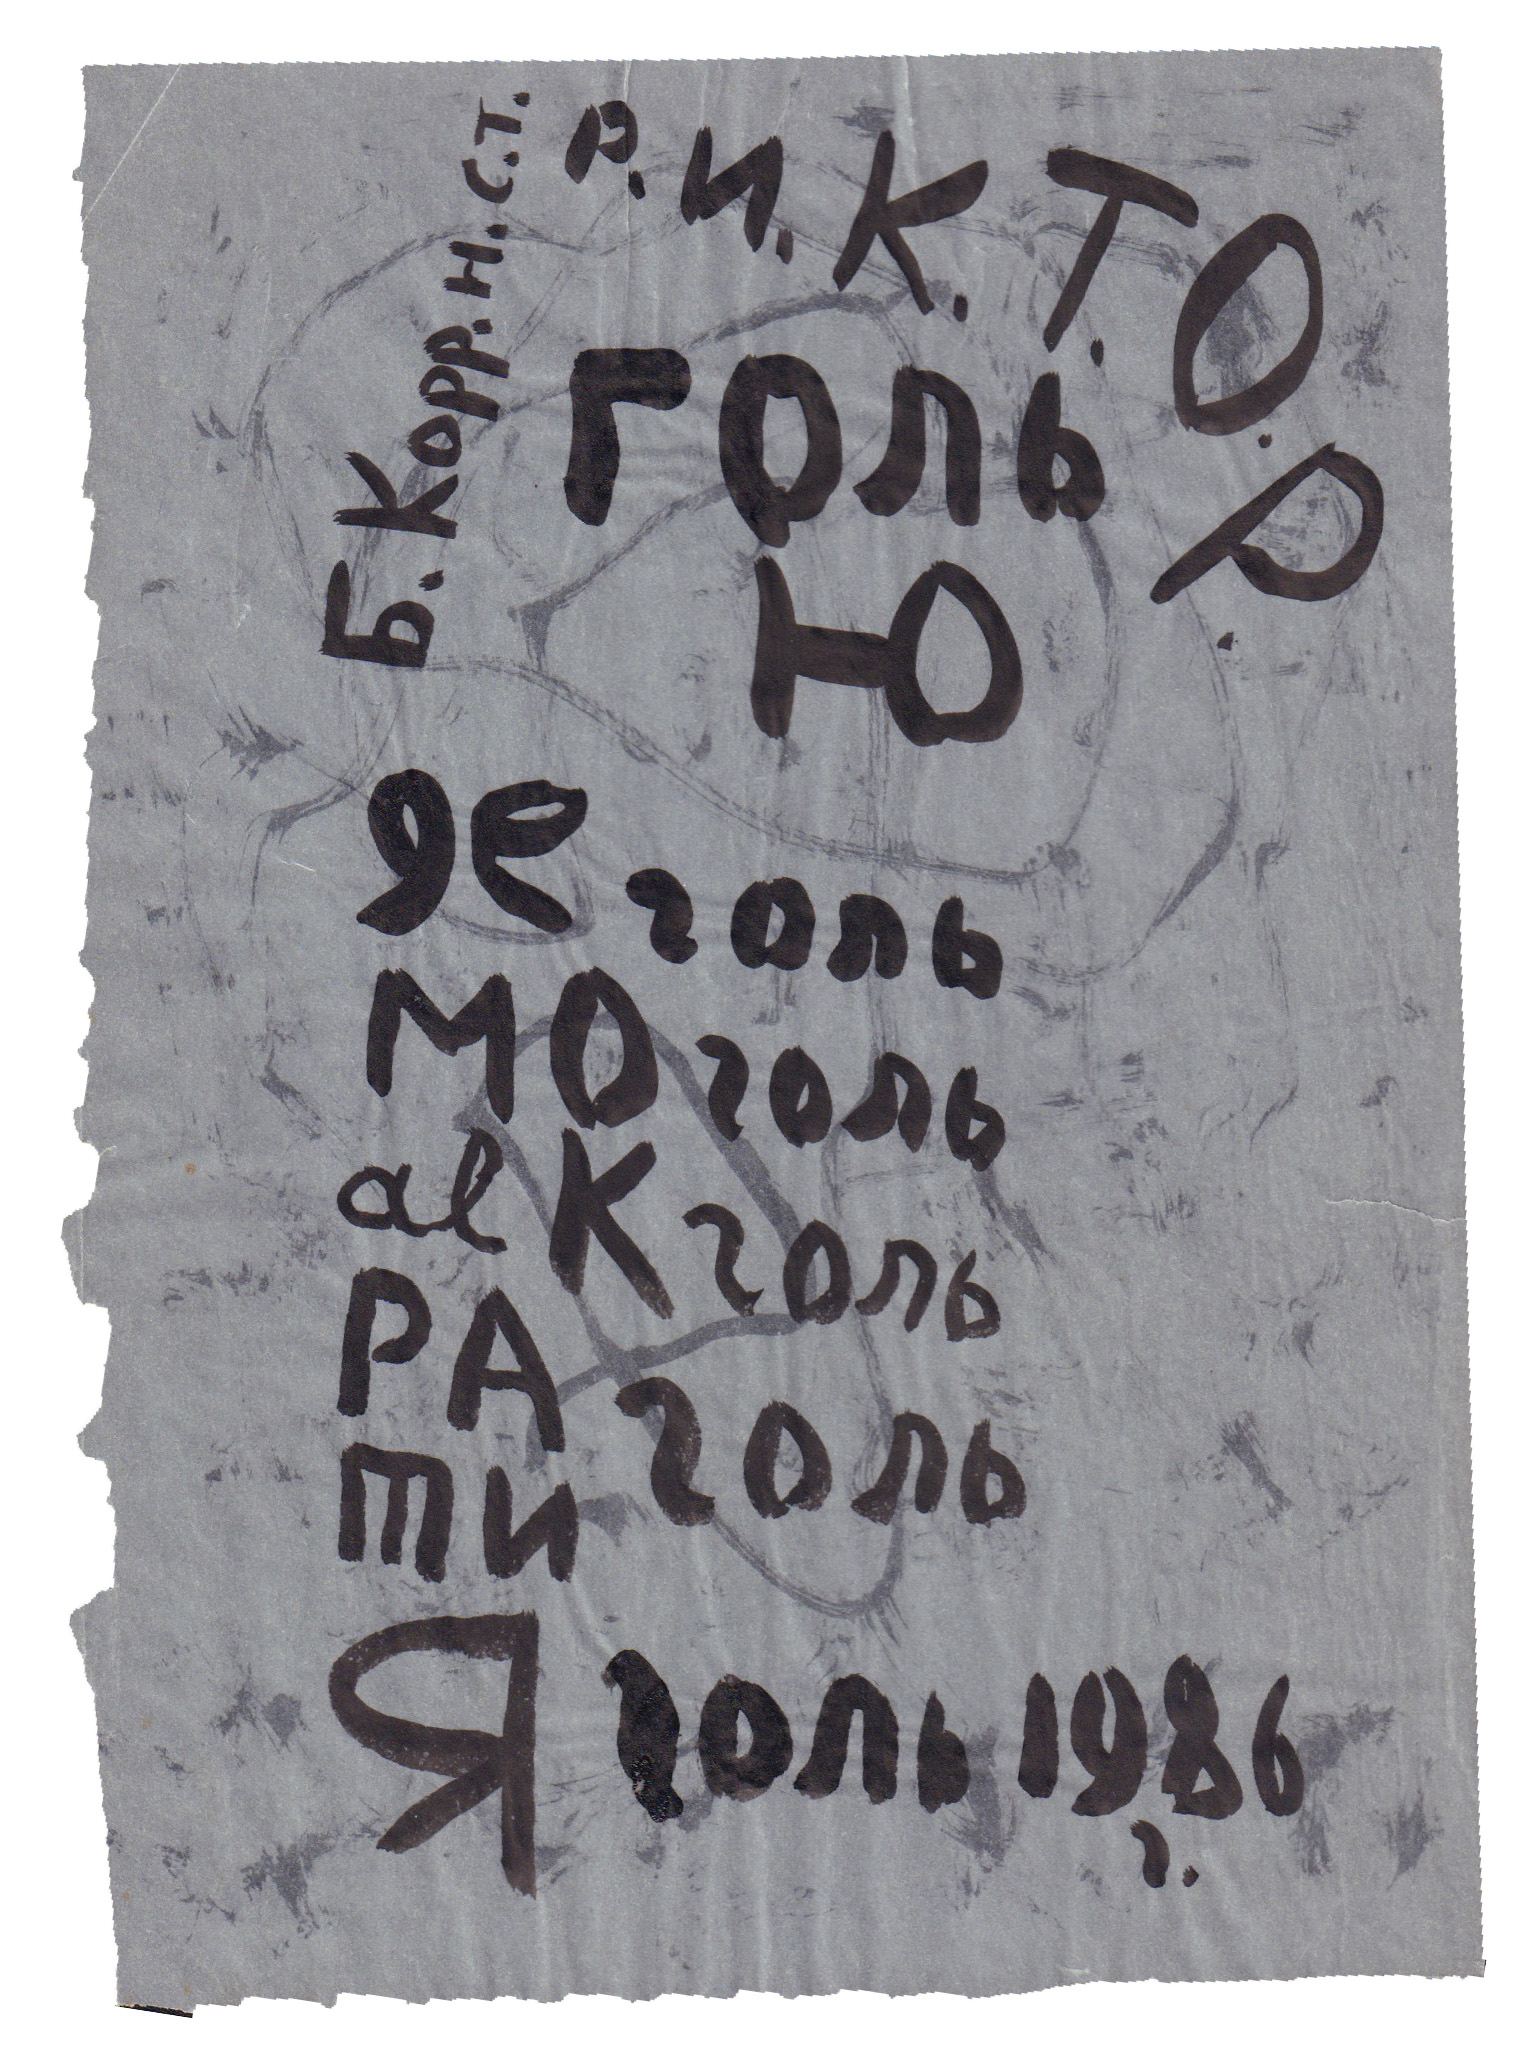 Б. Корр. Н. С.Т.
В. И. К. Т. О. Р.
Голь
Ю
яе голь
МО голь
alК голь
РА голь
ти
Я голь 1986
г.